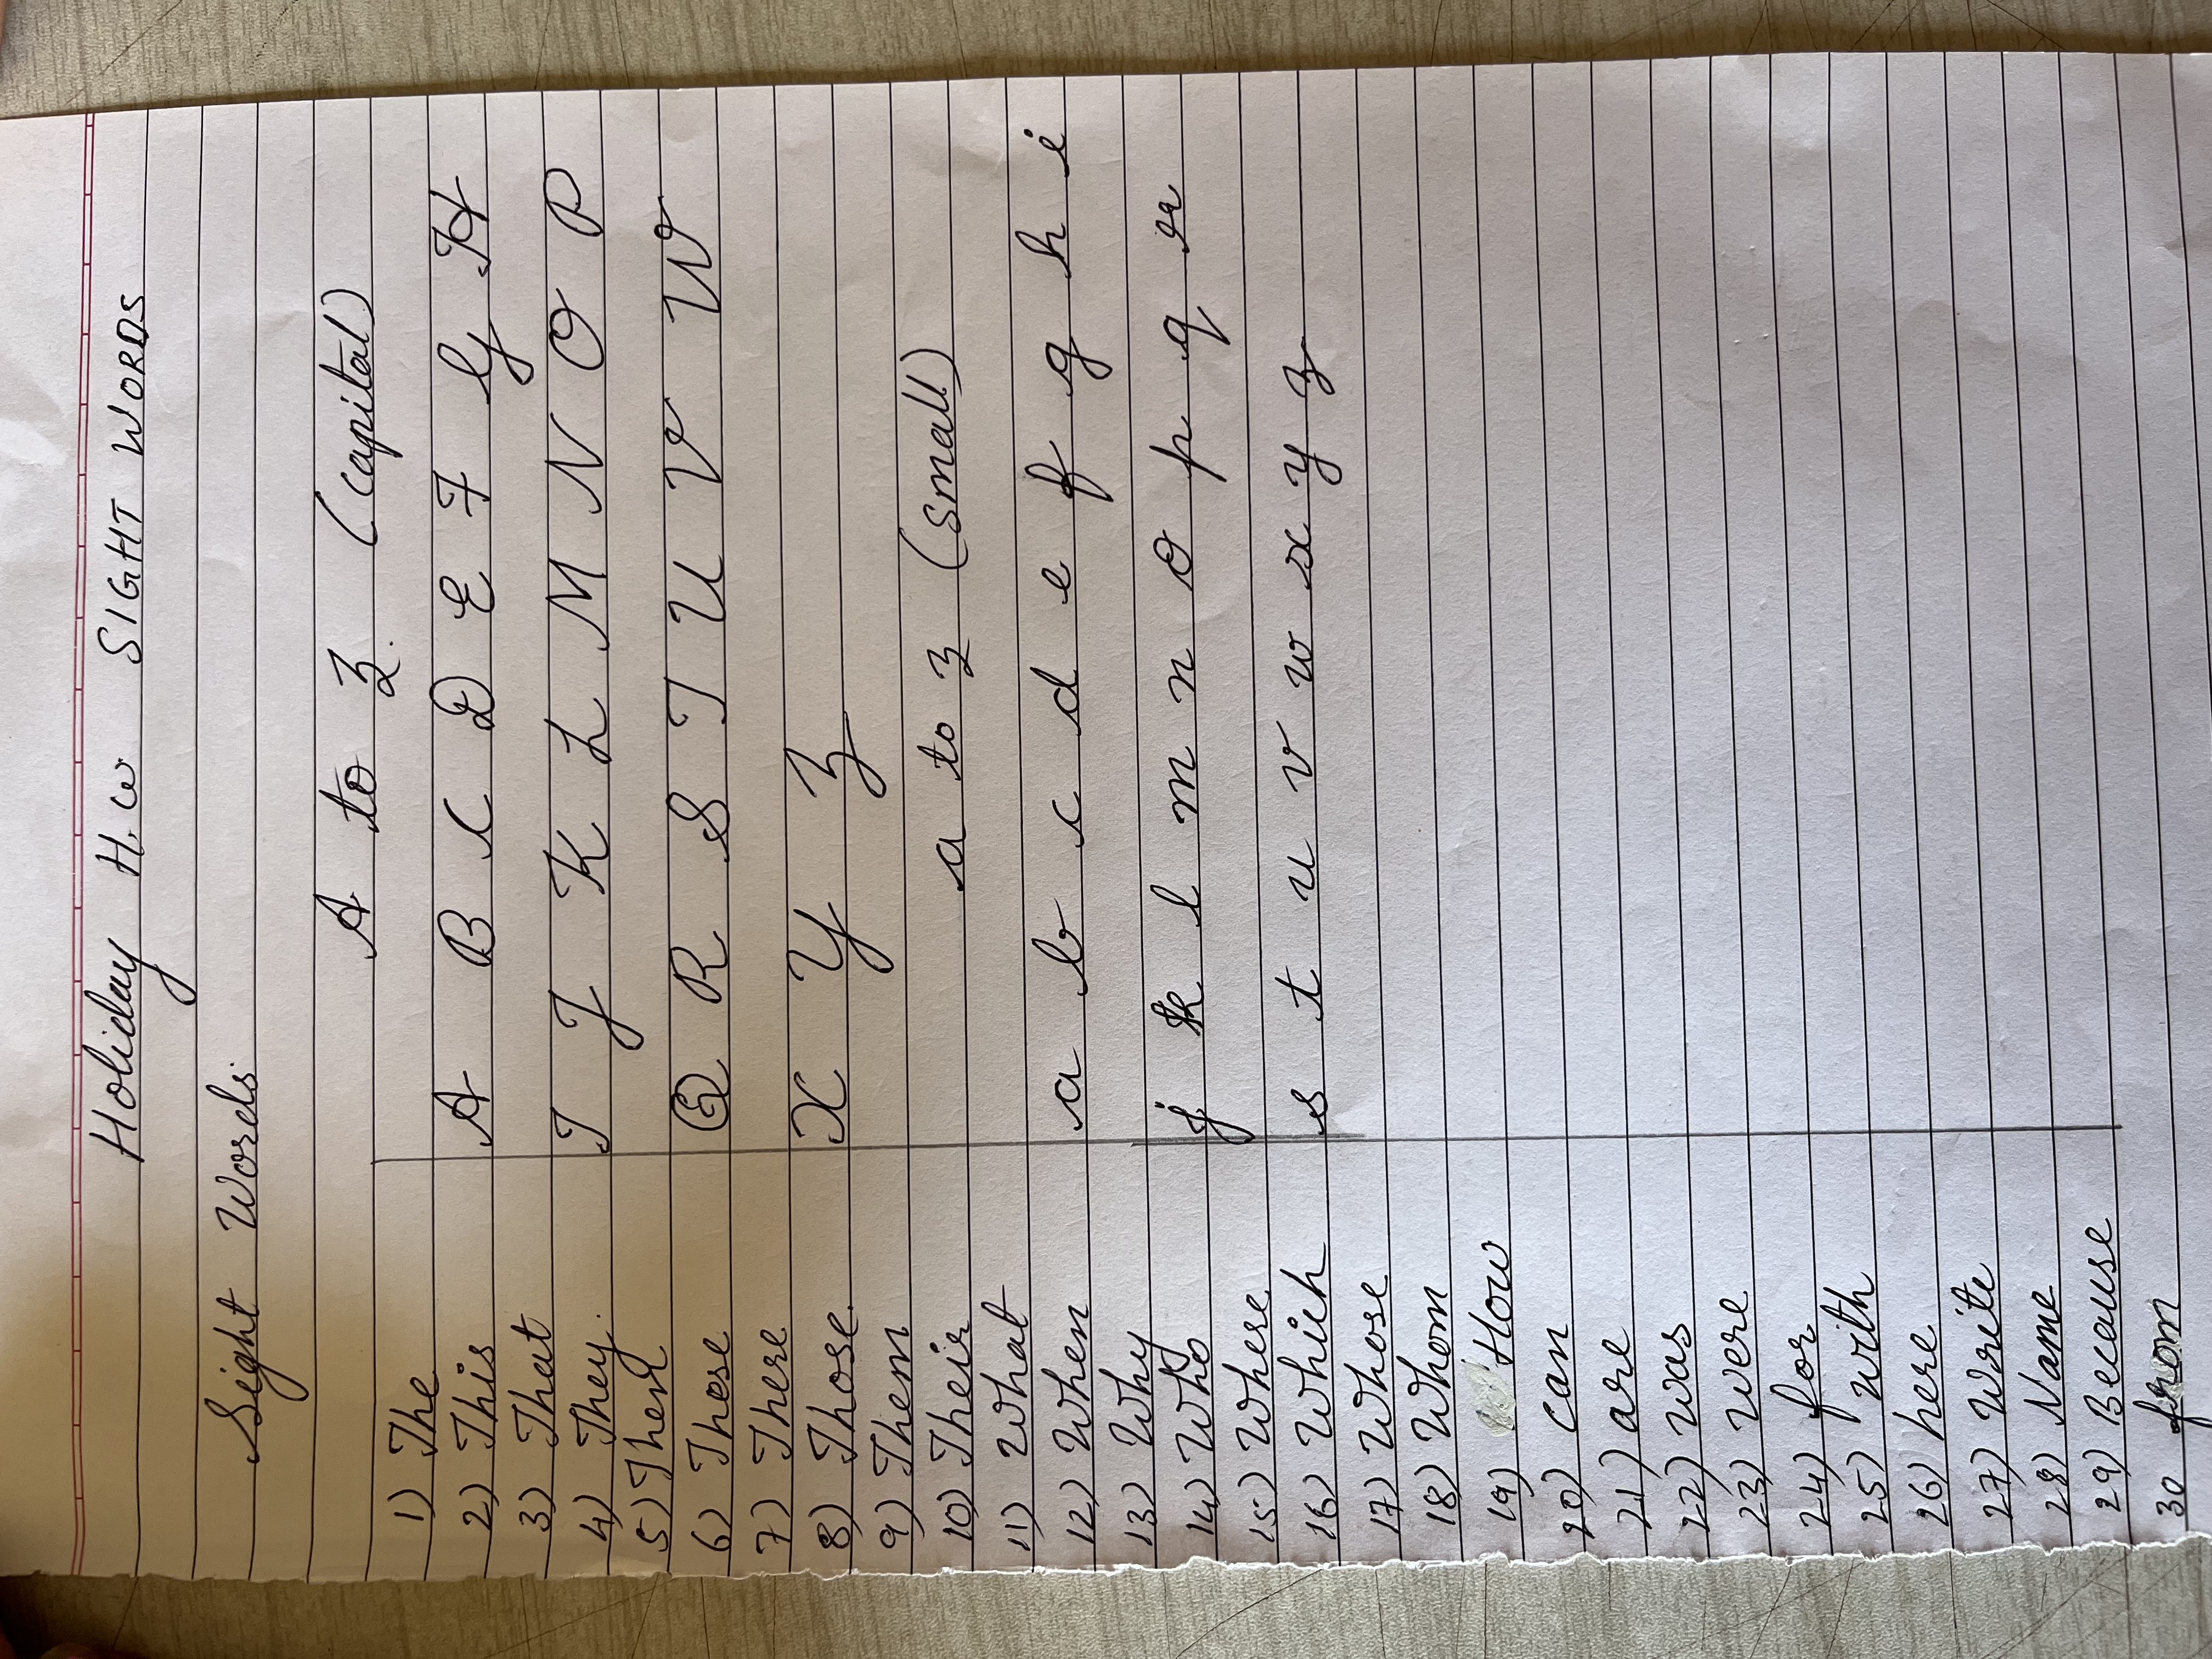 Holiday H.w SIGHT WORDS
Sight Words.
A to Z. (capital)
A B C D E F G H
I J K L M N O P
Q R S T U V W
X Y Z
a to z (small)
a b c d e f g h i
j k l m n o p q r
s t u v w x y z
1) The
2) This
3) That
4) They.
5) Then
6) These
7) There
8) Those.
9) Them
10) Their
11) What
12) When
13) Why
14) Who
15) Where
16) Which
17) Whose
18) Whom
19) How
20) can
21) are
22) was
23) were
24) for
25) with
26) here
27) Write
28) Name
29) Because
30 from